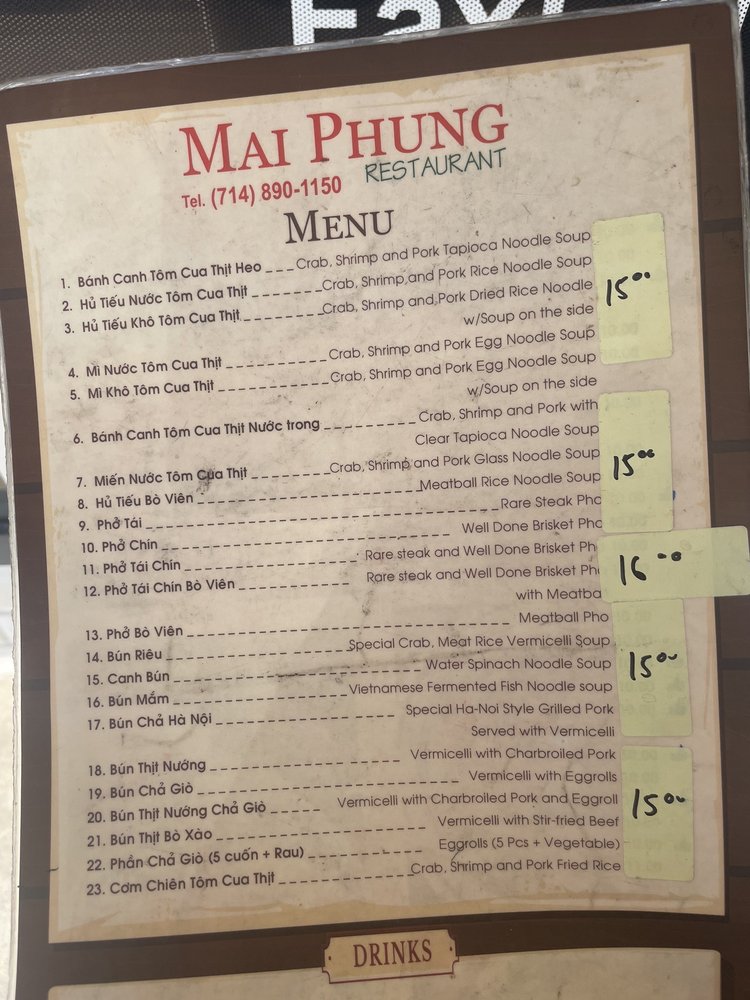 MAI PHUNG
RESTAURANT
Tel. (714) 890-1150
MENU
1. Bánh Canh Tôm Cua Thịt Heo _ _ _ Crab, Shrimp and Pork Tapioca Noodle Soup
2. Hủ Tiếu Nước Tôm Cua Thịt _ _ _ _ _ _ _ Crab, Shrimp and Pork Rice Noodle Soup
3. Hủ Tiếu Khô Tôm Cua Thịt _ _ _ _ _ _ _ _ Crab, Shrimp and Pork Dried Rice Noodle
w/Soup on the side
15.00
4. Mì Nước Tôm Cua Thịt _ _ _ _ _ _ _ _ _ _ Crab, Shrimp and Pork Egg Noodle Soup
5. Mì Khô Tôm Cua Thịt _ _ _ _ _ _ _ _ _ _ _ Crab, Shrimp and Pork Egg Noodle Soup
w/Soup on the side
6. Bánh Canh Tôm Cua Thịt Nước trong _ _ _ _ _ _ _ _ Crab, Shrimp and Pork with
Clear Tapioca Noodle Soup
7. Miến Nước Tôm Cua Thịt _ _ _ _ _ _ _ _ Crab, Shrimp and Pork Glass Noodle Soup
15.00
8. Hủ Tiếu Bò Viên _ _ _ _ _ _ _ _ _ _ _ _ _ _ _ _ _ _ _ Meatball Rice Noodle Soup
9. Phở Tái _ _ _ _ _ _ _ _ _ _ _ _ _ _ _ _ _ _ _ _ _ _ _ _ _ _ _ _ _ Rare Steak Pho
10. Phở Chín _ _ _ _ _ _ _ _ _ _ _ _ _ _ _ _ _ _ _ _ _ _ _ _ Well Done Brisket Pho
11. Phở Tái Chín _ _ _ _ _ _ _ _ _ _ _ _ _ _ Rare steak and Well Done Brisket Ph
12. Phở Tái Chín Bò Viên _ _ _ _ _ _ _ _ _ Rare steak and Well Done Brisket Pho
with Meatba
16.00
13. Phở Bò Viên _ _ _ _ _ _ _ _ _ _ _ _ _ _ _ _ _ _ _ _ _ _ _ _ _ _ Meatball Pho
14. Bún Riêu _ _ _ _ _ _ _ _ _ _ _ _ _ _ _ Special Crab, Meat Rice Vermicelli Soup
15. Canh Bún _ _ _ _ _ _ _ _ _ _ _ _ _ _ _ _ _ _ _ _ Water Spinach Noodle Soup
15.00
16. Bún Mắm _ _ _ _ _ _ _ _ _ _ _ _ _ _ Vietnamese Fermented Fish Noodle soup
17. Bún Chả Hà Nội _ _ _ _ _ _ _ _ _ _ _ _ _ _ Special Ha-Noi Style Grilled Pork
Served with Vermicelli
18. Bún Thịt Nướng _ _ _ _ _ _ _ _ _ _ _ _ _ _ _ Vermicelli with Charbroiled Pork
19. Bún Chả Giò _ _ _ _ _ _ _ _ _ _ _ _ _ _ _ _ _ _ _ _ _ Vermicelli with Eggrolls
20. Bún Thịt Nướng Chả Giò _ _ _ _ Vermicelli with Charbroiled Pork and Eggroll
15.00
21. Bún Thịt Bò Xào _ _ _ _ _ _ _ _ _ _ _ _ _ _ _ _ _ Vermicelli with Stir-fried Beef
22. Phần Chả Giò (5 cuốn + Rau) _ _ _ _ _ _ _ _ _ Eggrolls (5 Pcs + Vegetable)
23. Cơm Chiên Tôm Cua Thịt _ _ _ _ _ _ _ _ _ _ Crab, Shrimp and Pork Fried Rice
DRINKS